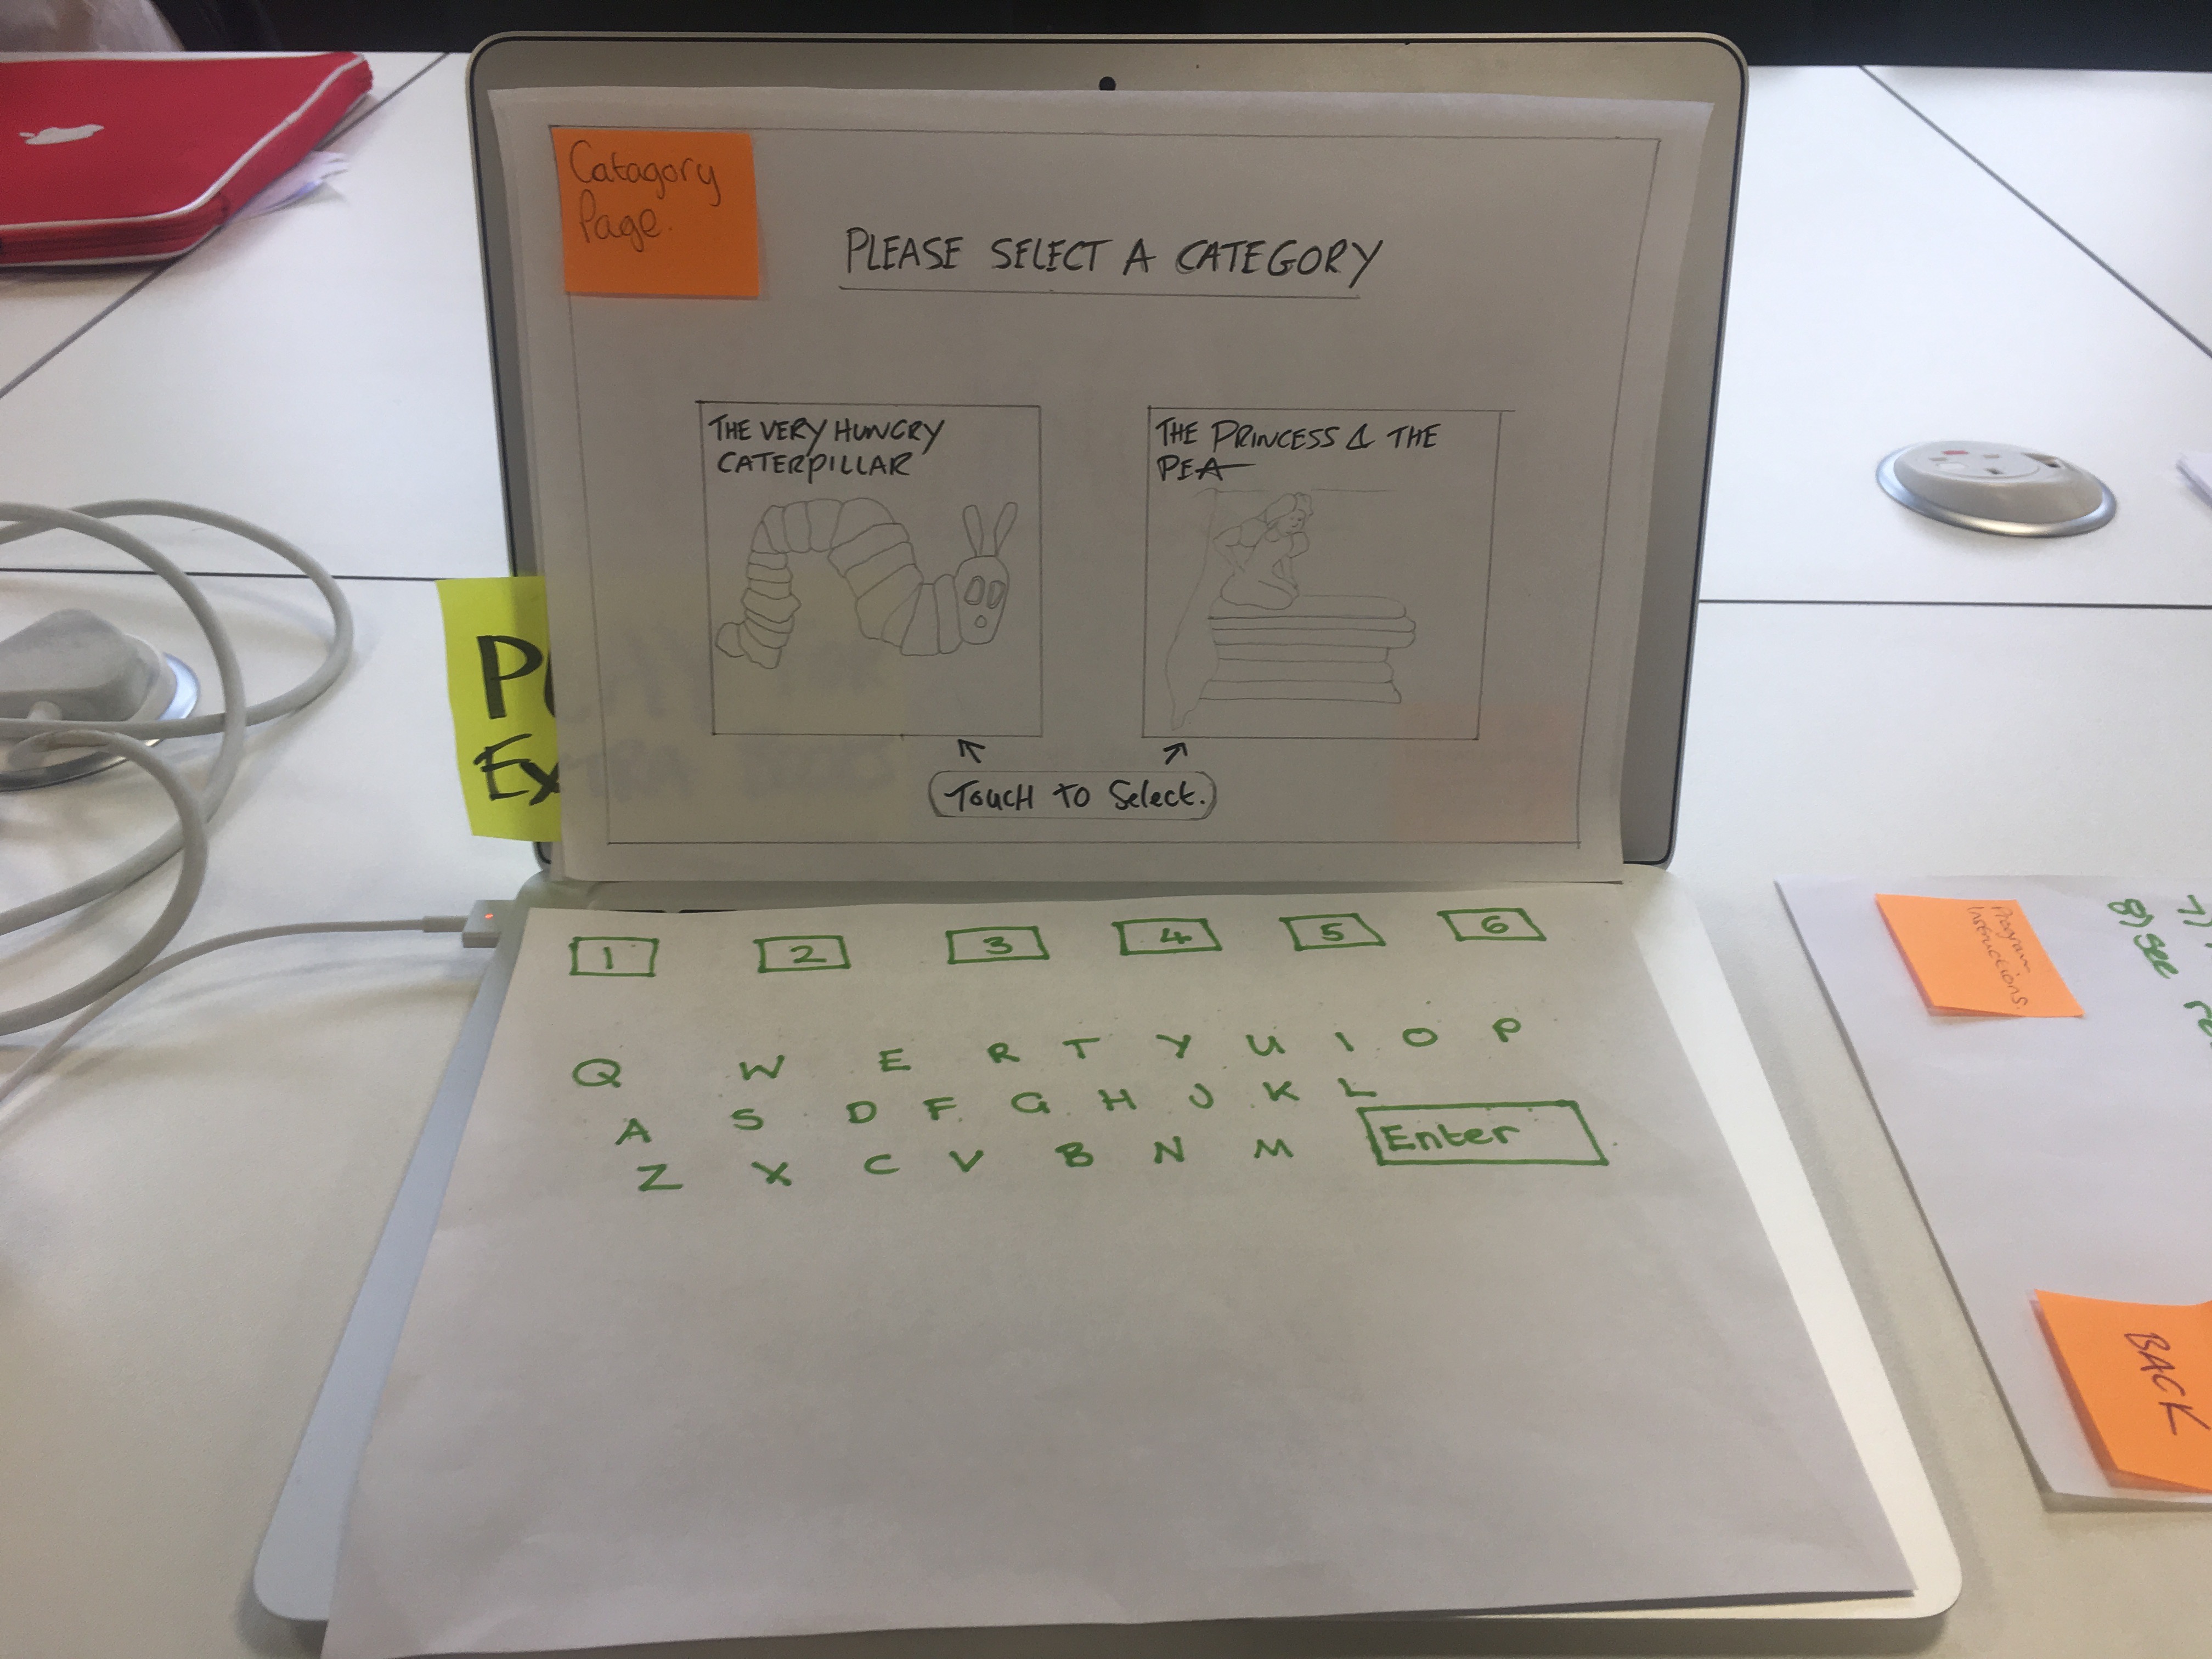 Catagory
Page.
PLEASE SELECT A CATEGORY
THE VERY HUNGRY
CATERPILLAR
THE PRINCESS & THE
PEA
TOUCH TO Select.
P
Ex
1 2 3 4 5 6
Q W E R T Y U I O P
A S D F G H J K L
Z X C V B N M Enter
Program
Instructions
8) see
BACK